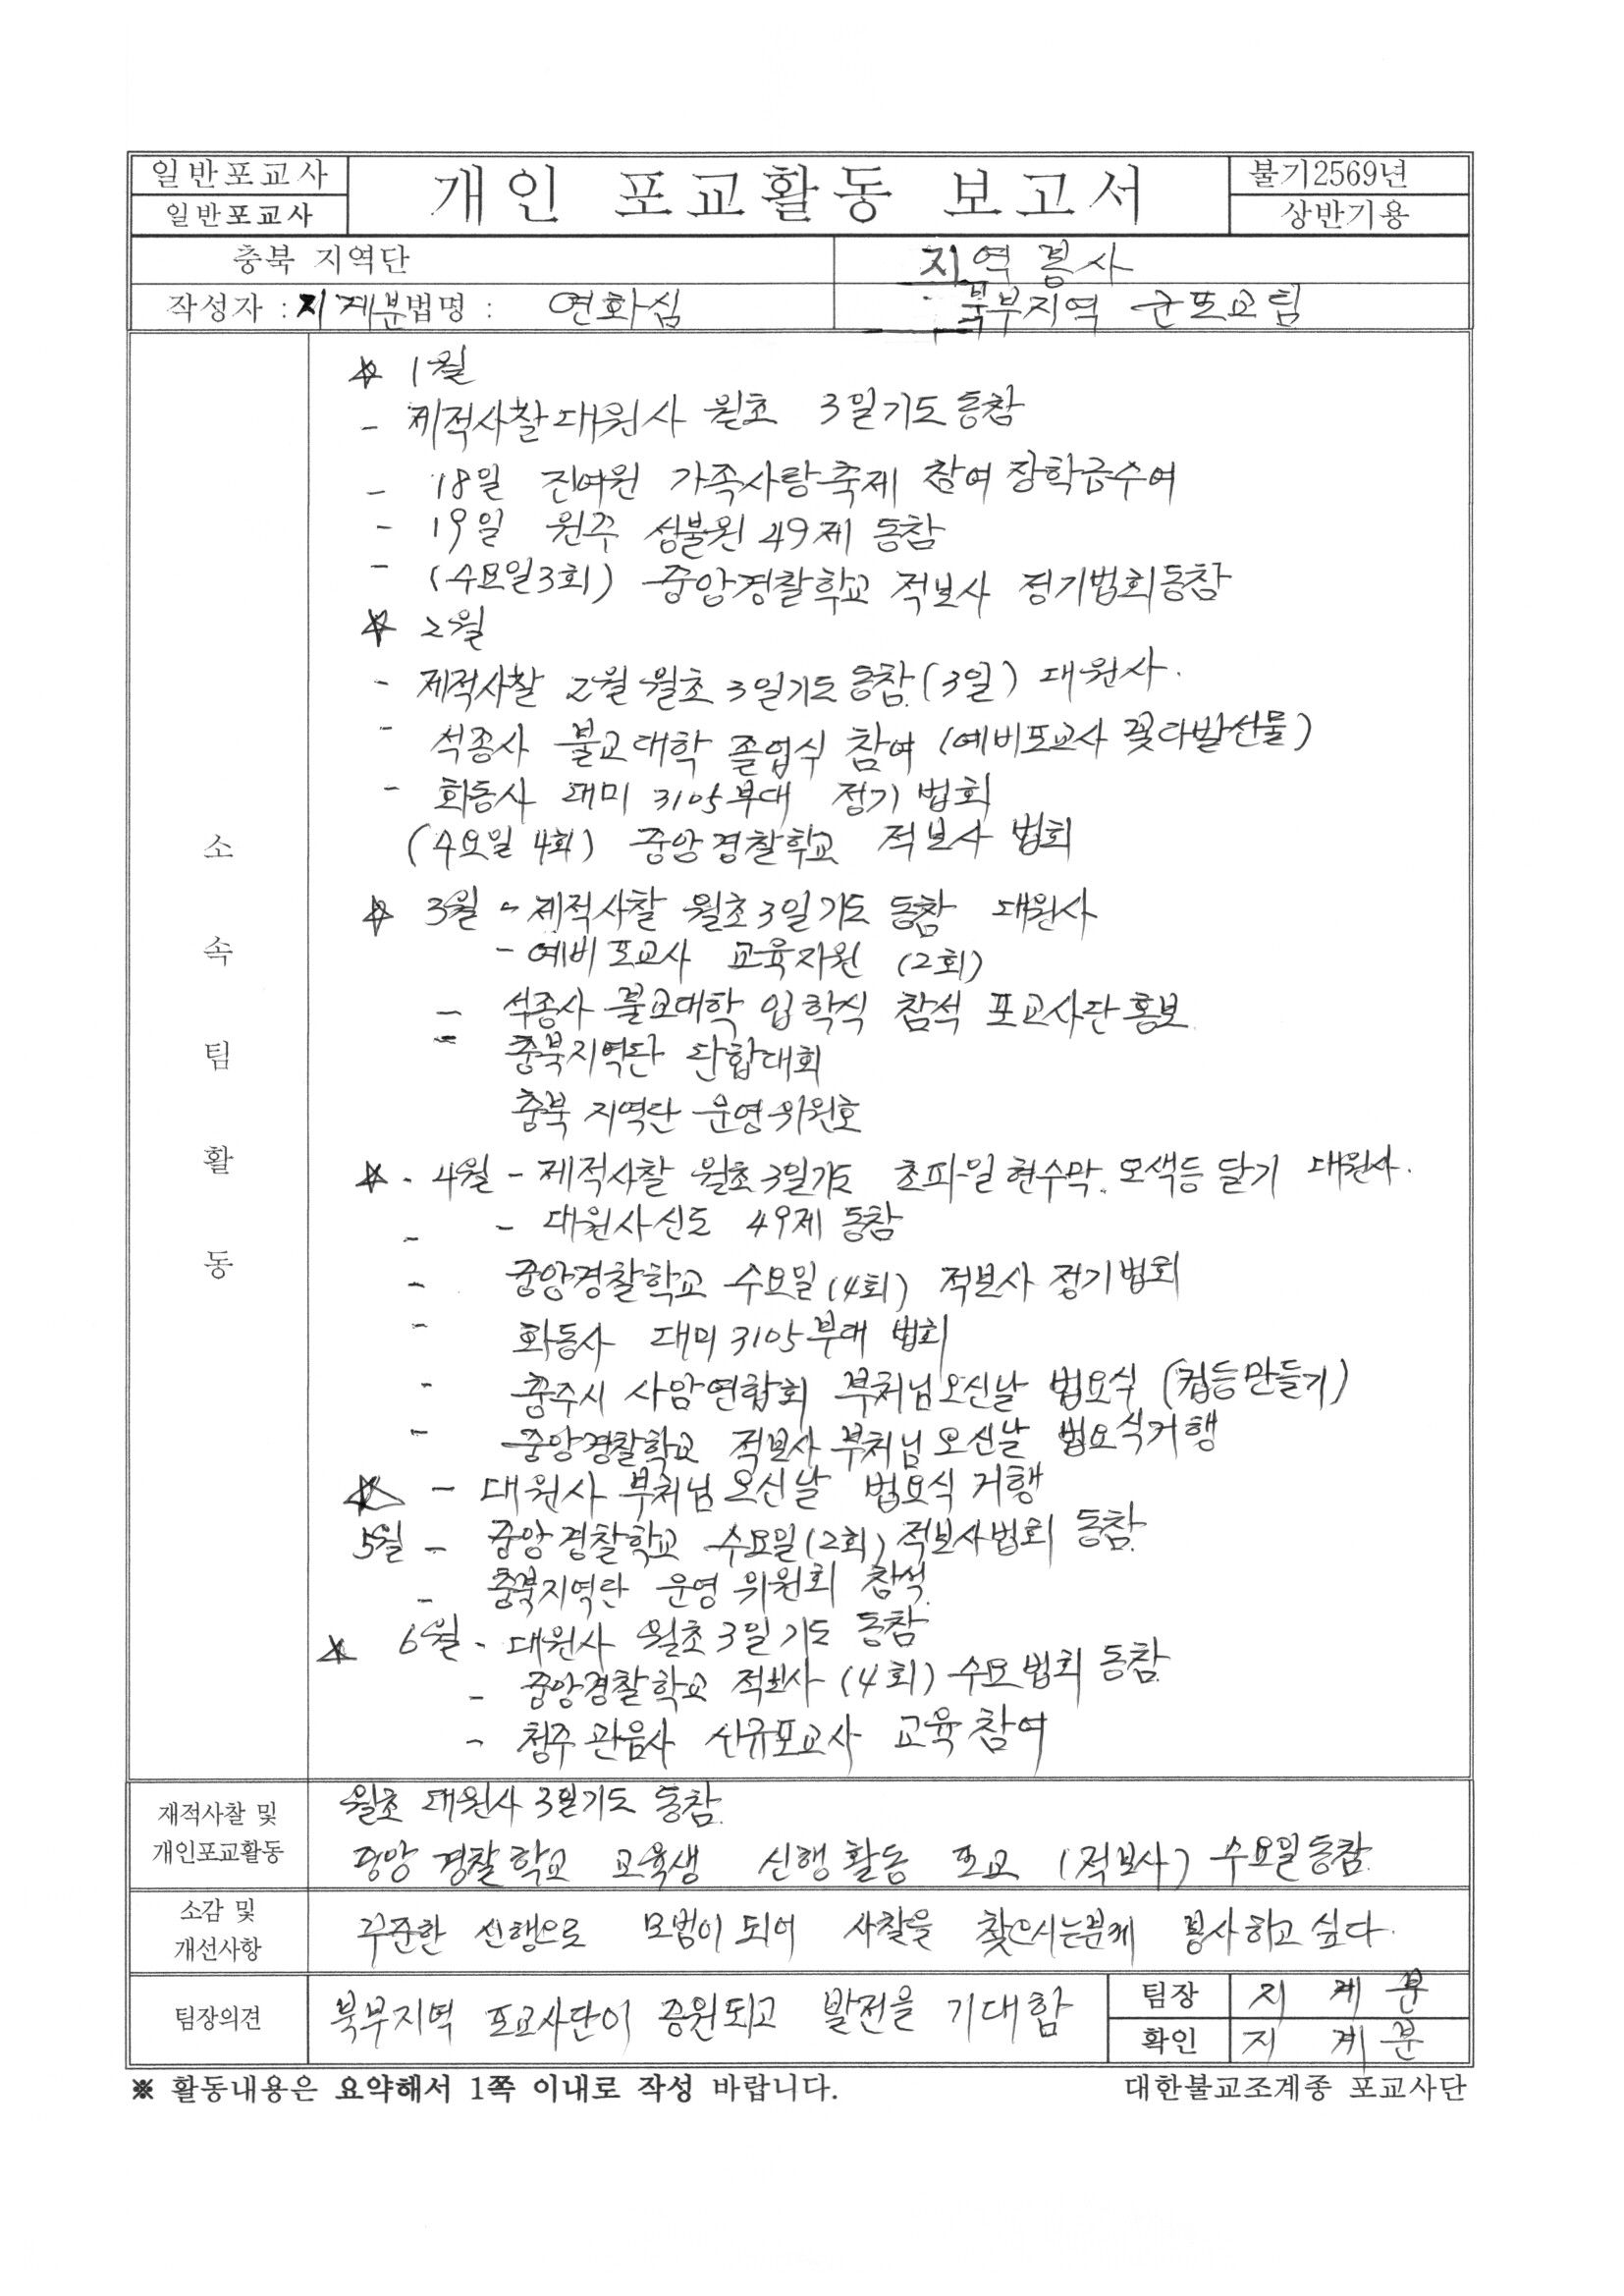 일반포교사
일반포교사
개인 포교활동 보고서
불기2569년
상반기용
충북 지역단
지역봉사
작성자 : 지계분 법명 : 연화심
북부지역 군포교팀
소속팀활동
☆ 1월
- 제적사찰 대원사 월초 3일기도 동참
- 18일 진여원 가족사랑축제 참여 장학금수여
- 19일 원주 성불원 49제 동참
- (수요일3회) 중앙경찰학교 적보사 정기법회동참
☆ 2월
- 제적사찰 2월 월초 3일기도 동참 (3일) 대원사.
- 석종사 불교대학 졸업식 참여 (예비포교사 꽃다발선물)
- 화동사 대미 3105부대 정기법회
(수요일 4회) 중앙경찰학교 적보사 법회
☆ 3월 - 제적사찰 월초3일기도 동참 대원사
- 예비포교사 교육지원 (2회)
- 석종사 불교대학 입학식 참석 포교사단 홍보
- 충북지역단 단합대회
충북 지역단 운영위원호
☆. 4월 - 제적사찰 월초3일기도 초파일 현수막. 오색등 달기 대원사.
- 대원사신도 49제 동참
- 중앙경찰학교 수요일 (4회) 적보사 정기법회
- 화동사 대미 3105부대 법회
- 충주시 사암연합회 부처님오신날 법요식 (컵등만들기)
- 중앙경찰학교 적보사 부처님오신날 법요식거행
☆ - 대원사 부처님오신날 법요식 거행
5월 - 중앙경찰학교 수요일(2회) 적보사법회 동참.
- 충북지역단 운영위원회 참석.
☆ 6월 - 대원사 월초3일기도 동참
- 중앙경찰학교 적보사 (4회) 수요법회 동참.
- 청주 관음사 신규포교사 교육 참여
재적사찰 및
개인포교활동
월초 대원사 3일기도 동참.
중앙경찰학교 교육생 신행활동 포교 (적보사) 수요일동참.
소감 및
개선사항
꾸준한 신행으로 모범이 되어 사찰을 찾으시는분께 봉사하고 싶다.
팀장의견
북부지역 포교사단이 증원되고 발전을 기대함
팀장 지계분
확인 지계분
※ 활동내용은 요약해서 1쪽 이내로 작성 바랍니다.
대한불교조계종 포교사단